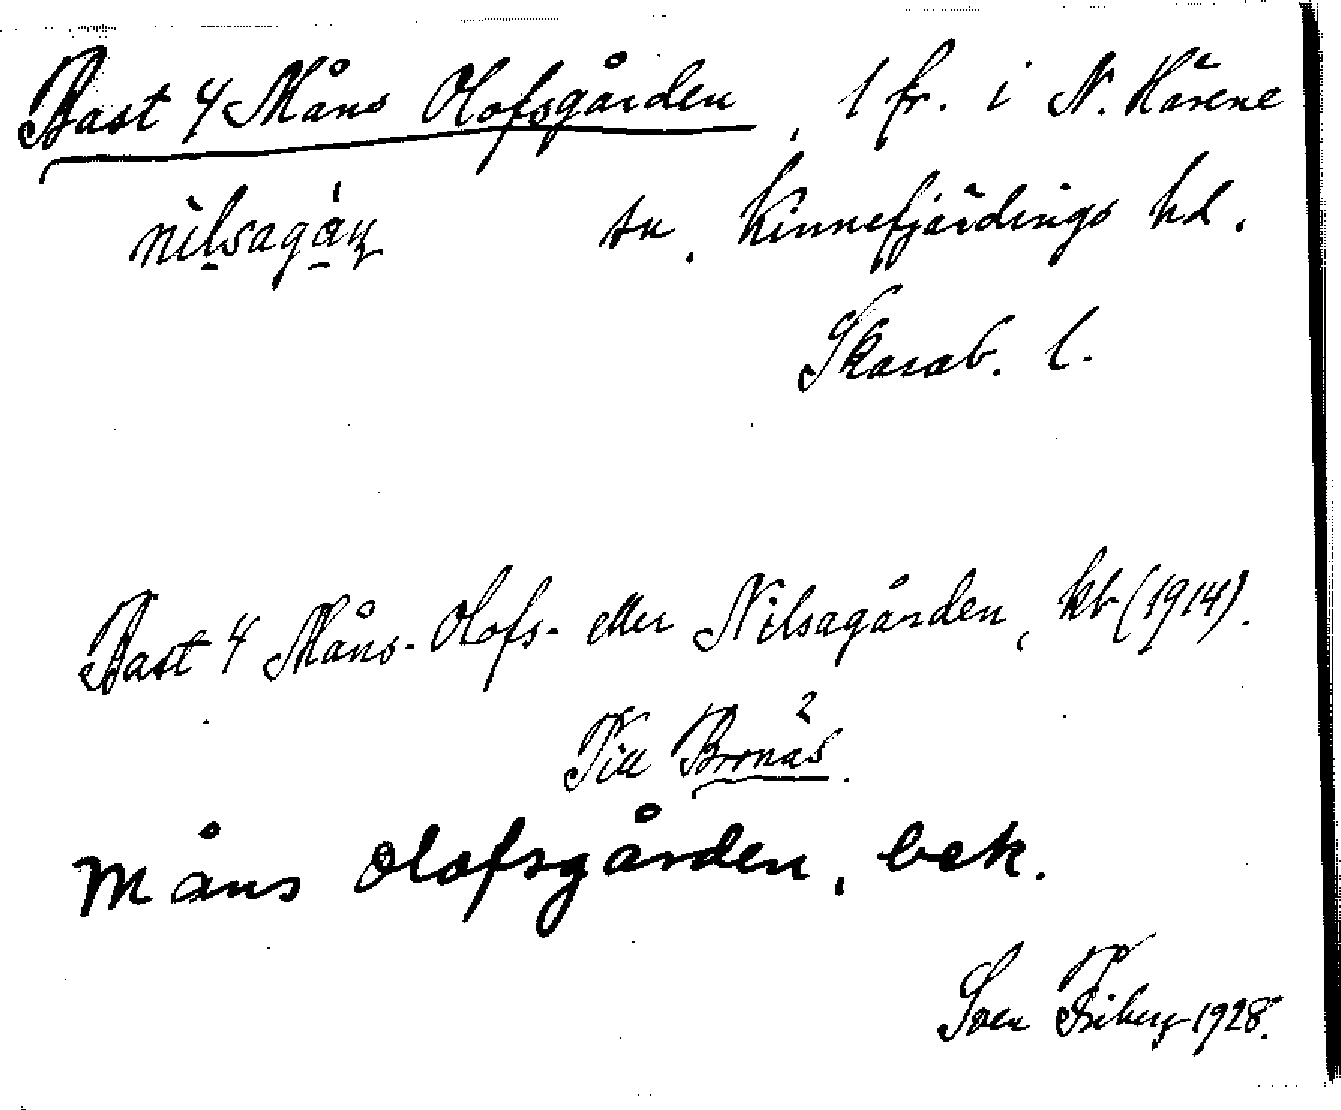 Bast 4 Måns Olofsgården, 1 fr. i N. Härene
nilsagán sn. Kinnefjärdings hd.
Skarab. l.
Bast 4 Måns-Olofs- eller Nilsagården, kb (1914).
Till Bronäs.
Måns Olofsgården, bek.
Sven Friberg 1928.